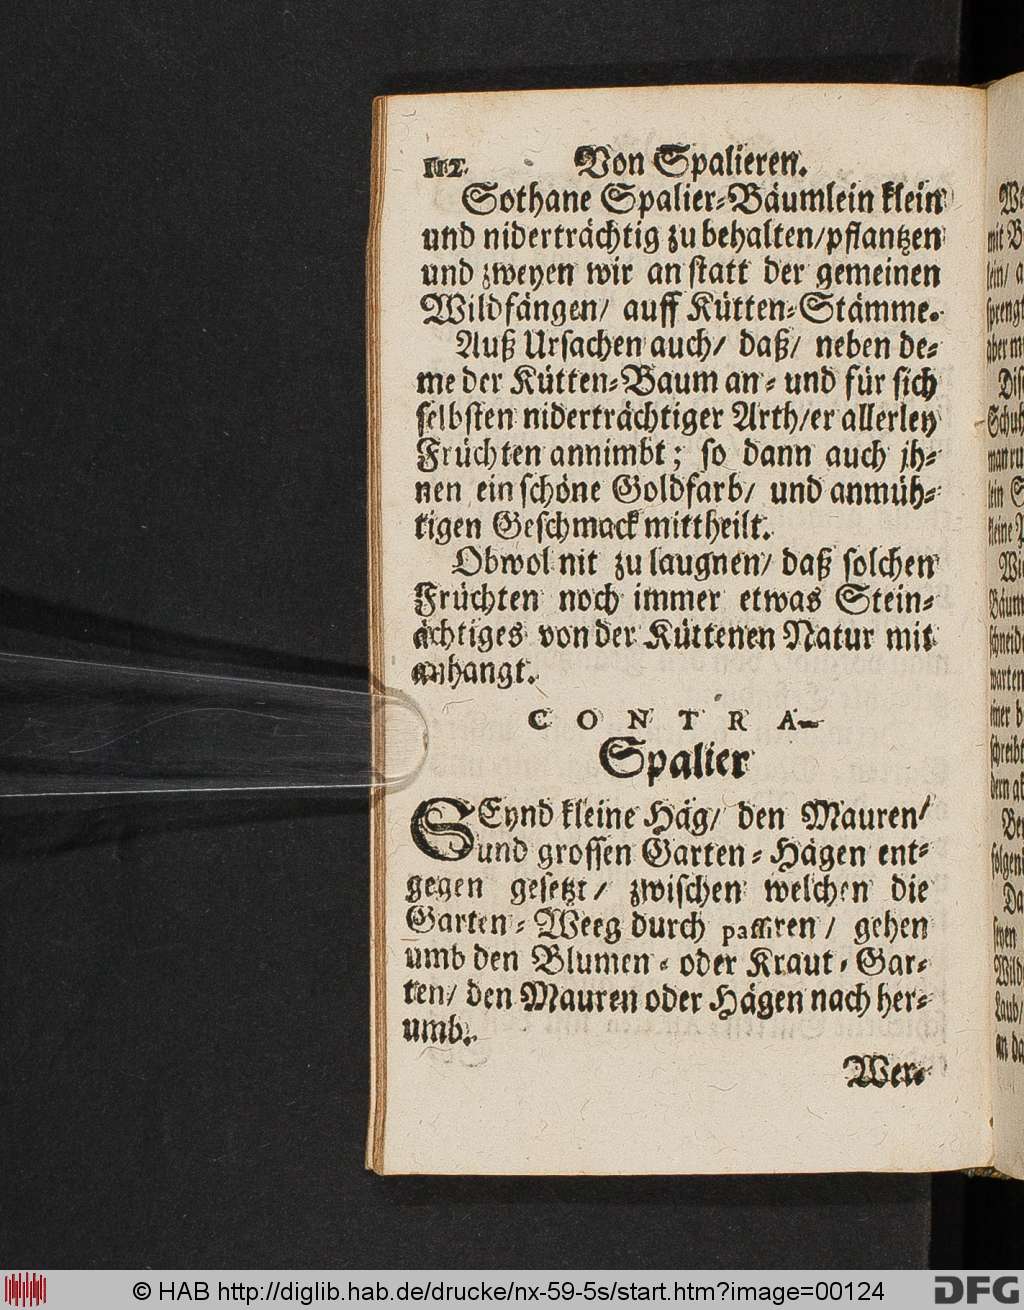 112. Von Spalieren.
Sothane Spalier-Bäumlein klein
und niderträchtig zu behalten/pflantzen
und zweyen wir an statt der gemeinen
Wildfängen/ auff Kütten-Stämme.
Auß Ursachen auch/ daß/ neben de-
me der Kütten-Baum an- und für sich
selbsten niderträchtiger Arth/er allerley
Früchten annimbt; so dann auch jh-
nen ein schöne Goldfarb/ und anmüh-
tigen Geschmack mittheilt.
Obwol nit zu laugnen/ daß solchen
Früchten noch immer etwas Stein-
ächtiges von der Küttenen Natur mit
anhangt.
CONTRA-
Spalier
SEynd kleine Häg/ den Mauren/
und grossen Garten-Hägen ent-
gegen gesetzt/ zwischen welchen die
Garten-Weeg durch passiren/ gehen
umb den Blumen- oder Kraut-Gar-
ten/ den Mauren oder Hägen nach her-
umb.
Wer-
mit B
lein/ a
sprengt
aber m
Dis
Schuh
man ru
lein S
kleine P
Wie
Bäum
schneide
warten
einer b
schreibt
dern a
folgen
Da
Wild
Laub/
an da
© HAB http://diglib.hab.de/drucke/nx-59-5s/start.htm?image=00124
DFG